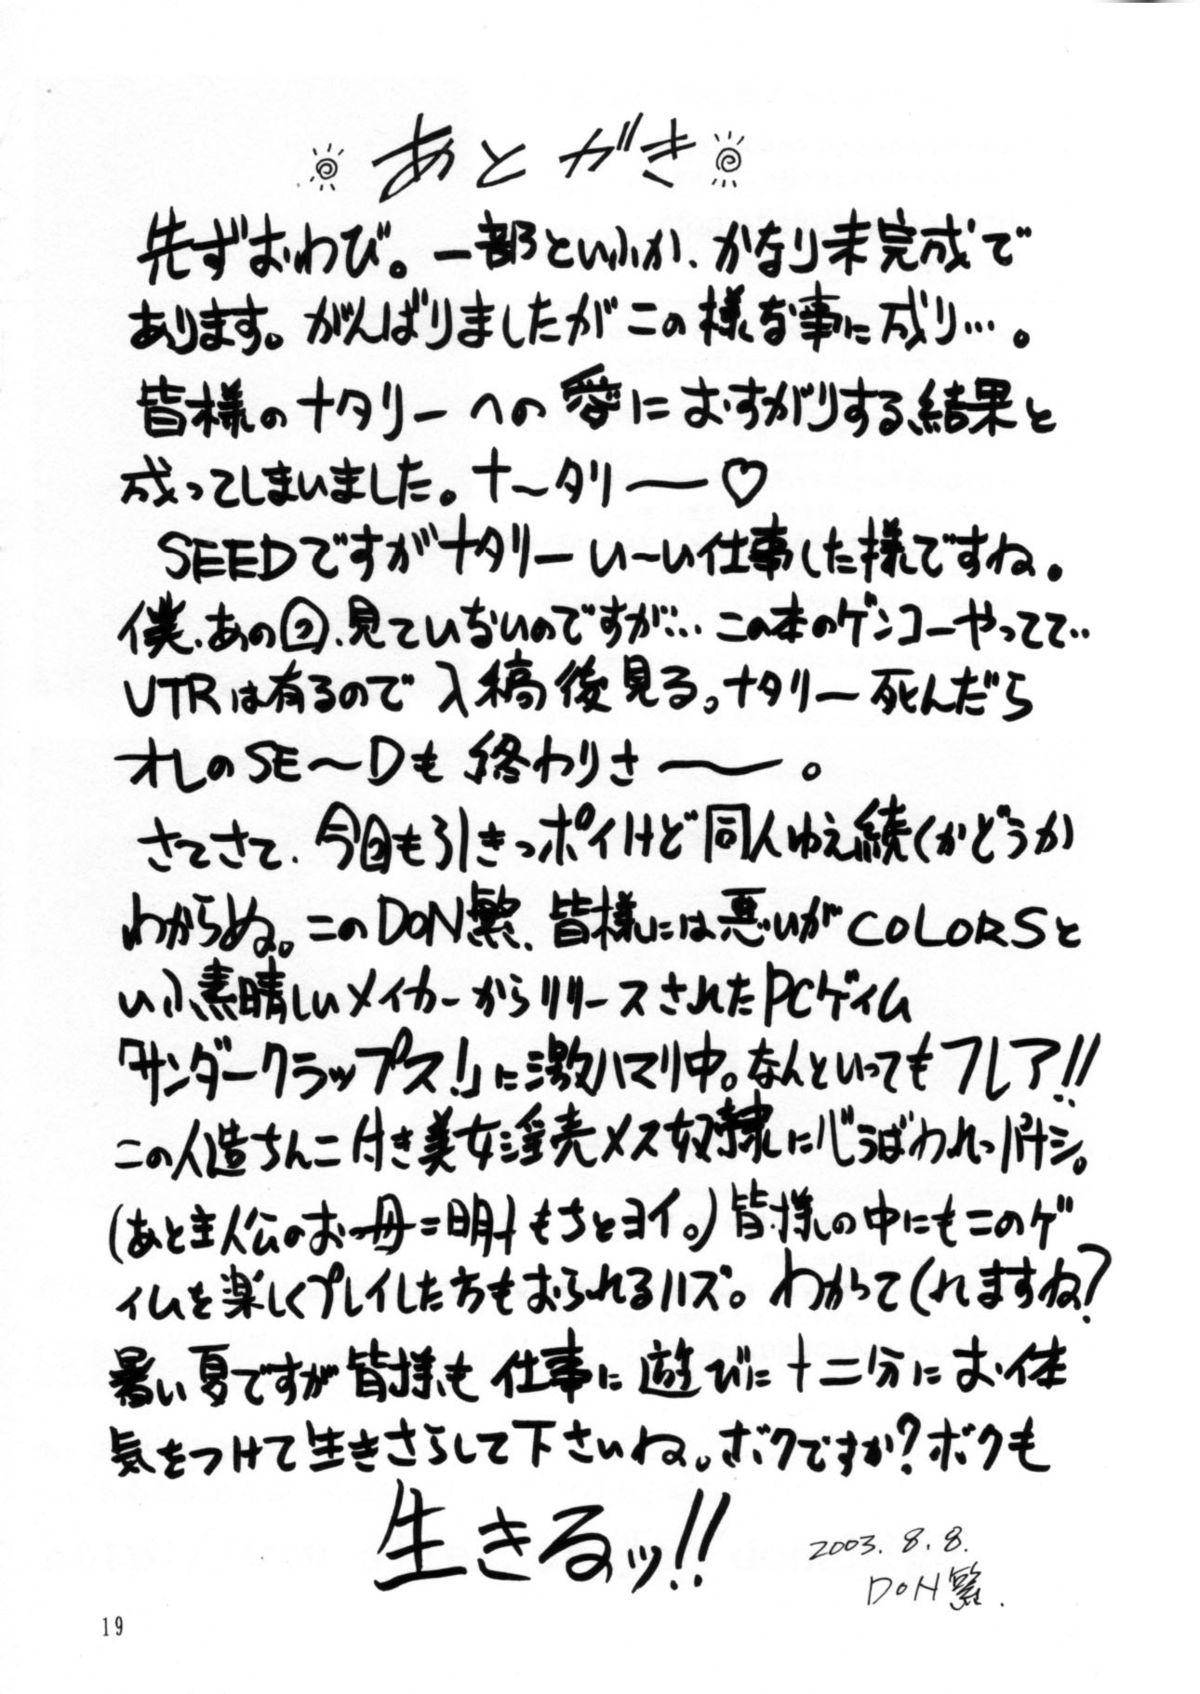 あとがき
先ずおわび。一部といふか、かなり未完成で
あります。がんばりましたがこの様な事に成り…。
皆様のナタリーへの愛におすがりする結果と
成ってしまいました。ナ～タリ――♡
SEEDですがナタリーい～い仕事した様ですね。
僕、あの回、見ていないのですが… この本のゲンコーやってて‥
VTRは有るので入稿後見る。ナタリー死んだら
オレのSE～Dも終わりさ――。
さてさて、今回も引きっポイけど同人ゆえ続くかどうか
わからぬ。このDON繁、皆様には悪いがCOLORSと
いふ素晴しいメイカーからリリースされたPCゲイム
「サンダークラップス!」に激ハマリ中。なんといってもフレア!!
この人造ちんこ付き美女淫売メス奴隷に心うばわれっパナシ。
(あと主人公のお母=明もちとヨイ。)皆様の中にもこのゲ
イムを楽しくプレイした方もおられるハズ。わかってくれますね?
暑い夏ですが皆様も仕事に遊びに十二分にお体
気をつけて生きさらして下さいね。ボクですか?ボクも
生きるッ!!
2003.8.8.
DON繁.
19